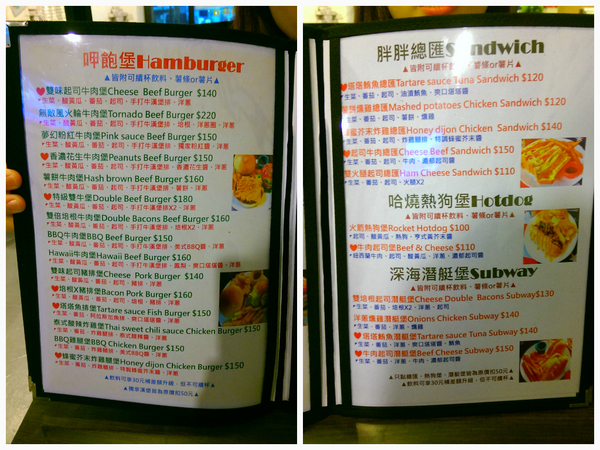 呷飽堡Hamburger
▲皆附可續杯飲料、薯條or薯片▲
♥雙味起司牛肉堡Cheese Beef Burger $140
生菜、酸黃瓜、番茄、起司、手打牛漢堡排、洋蔥
無敵風火輪牛肉堡Tornado Beef Burger $220
生菜、酸黃瓜、番茄、起司、手打牛漢堡排X2、培根、洋蔥圈、洋蔥
夢幻粉紅牛肉堡Pink sauce Beef Burger $150
生菜、酸黃瓜、番茄、起司、手打牛漢堡排、獨家粉紅醬、洋蔥
♥香濃花生牛肉堡Peanuts Beef Burger $150
生菜、酸黃瓜、番茄、起司、手打牛漢堡排、香濃花生醬、洋蔥
薯餅牛肉堡Hash brown Beef Burger $160
生菜、酸黃瓜、番茄、起司、手打牛漢堡排、薯餅、洋蔥
♥特級雙牛堡Double Beef Burger $180
生菜、酸黃瓜、番茄、起司、手打牛漢堡排X2、洋蔥
雙倍培根牛肉堡Double Bacons Beef Burger $160
生菜、酸黃瓜、番茄、起司、手打牛漢堡排、培根X2、洋蔥
BBQ牛肉堡BBQ Beef Burger $150
生菜、酸黃瓜、番茄、起司、手打牛漢堡排、美式BBQ醬、洋蔥
Hawaii牛肉堡Hawaii Beef Burger $160
生菜、酸黃瓜、番茄、起司、手打牛漢堡排、鳳梨、爽口塔塔醬、洋蔥
雙味起司豬排堡Cheese Pork Burger $140
生菜、酸黃瓜、番茄、起司、豬排、洋蔥
♥培根X豬排堡Bacon Pork Burger $160
生菜、酸黃瓜、番茄、起司、培根、豬排、洋蔥
♥塔塔魚排堡Tartare sauce Fish Burger $150
生菜、番茄、阿拉斯加魚排、爽口塔塔醬、洋蔥、起司
泰式酸辣炸雞堡Thai sweet chili sauce Chicken Burger $150
生菜、番茄、炸雞腿排、泰式酸辣醬、洋蔥
BBQ雞腿堡BBQ Chicken Burger $150
生菜、番茄、炸雞腿排、美式BBQ醬、洋蔥
♥蜂蜜芥末炸雞腿堡Honey dijon Chicken Burger $150
生菜、番茄、炸雞腿排、特調蜂蜜芥末醬、洋蔥
▲飲料可享30元補差額升級，但不可續杯▲
▲獨享漢堡皆為原價扣50元▲
胖胖總匯Sandwich
▲皆附可續杯飲料、薯條or薯片▲
♥塔塔鮪魚總匯Tartare sauce Tuna Sandwich $120
生菜、番茄、起司、油漬鮪魚、爽口塔塔醬
燻雞總匯Mashed potatoes Chicken Sandwich $120
蜂蜜芥末炸雞總匯Honey dijon Chicken Sandwich $140
生菜、番茄、起司、炸雞腿排、特調蜂蜜芥末醬
♥起司牛肉總匯Cheese Beef Sandwich $150
生菜、番茄、起司、牛肉、濃郁起司醬
雙火腿起司總匯Ham Cheese Sandwich $110
生菜、番茄、起司、火腿X2
哈燒熱狗堡Hotdog
▲皆附可續杯飲料、薯條or薯片▲
火箭熱狗堡Rocket Hotdog $100
起司、酸黃瓜、熱狗、亨式黃芥末醬
♥牛肉起司堡Beef & Cheese $110
紐西蘭牛肉、起司、酸黃瓜、洋蔥、濃郁起司醬
深海潛艇堡Subway
▲皆附可續杯飲料、薯條or薯片▲
雙培根起司潛艇堡Cheese Double Bacons Subway$130
生菜、番茄、培根X2、洋蔥、起司
洋蔥燻雞潛艇堡Onions Chicken Subway $140
生菜、番茄、起司、洋蔥、燻雞
♥塔塔鮪魚潛艇堡Tartare sauce Tuna Subway $140
生菜、番茄、起司、洋蔥、爽口塔塔醬、鮪魚
♥牛肉起司潛艇堡Beef Cheese Subway $150
生菜、番茄、起司、洋蔥、牛肉、濃郁起司醬
▲只點總匯、熱狗堡、潛艇堡皆為原價扣50元▲
▲飲料可享30元補差額升級，但不可續杯▲